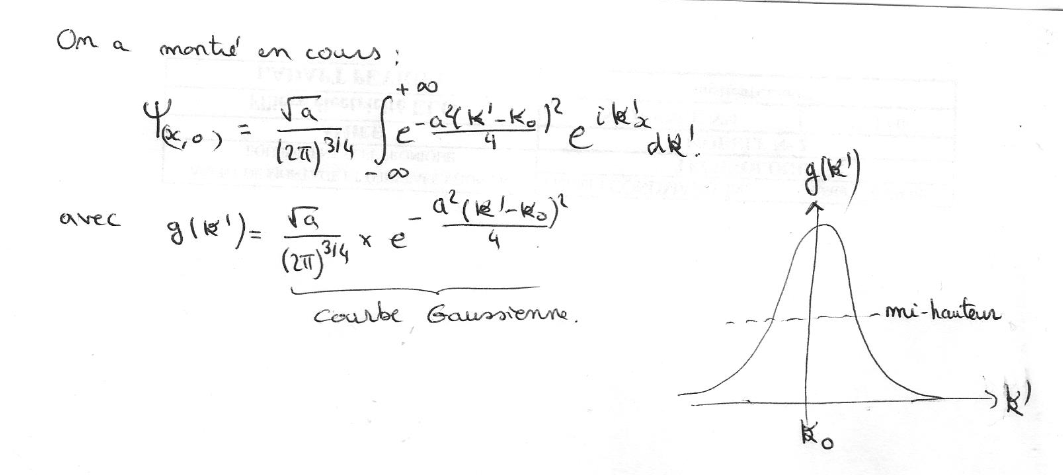 On a montré en cours :
Ψ(x,0) = √a/(2π)^3/4 ∫_{-∞}^{+∞} e^{-a²(k'-k₀)²/4} e^{ik'x} dk'.
avec g(k') = √a/(2π)^3/4 × e^{-a²(k'-k₀)²/4}
Courbe Gaussienne.
g(k')
mi-hauteur
k'
k₀